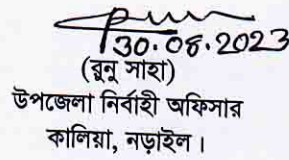 30.08.2023
(রুনু সাহা)
উপজেলা নির্বাহী অফিসার
কালিয়া, নড়াইল।